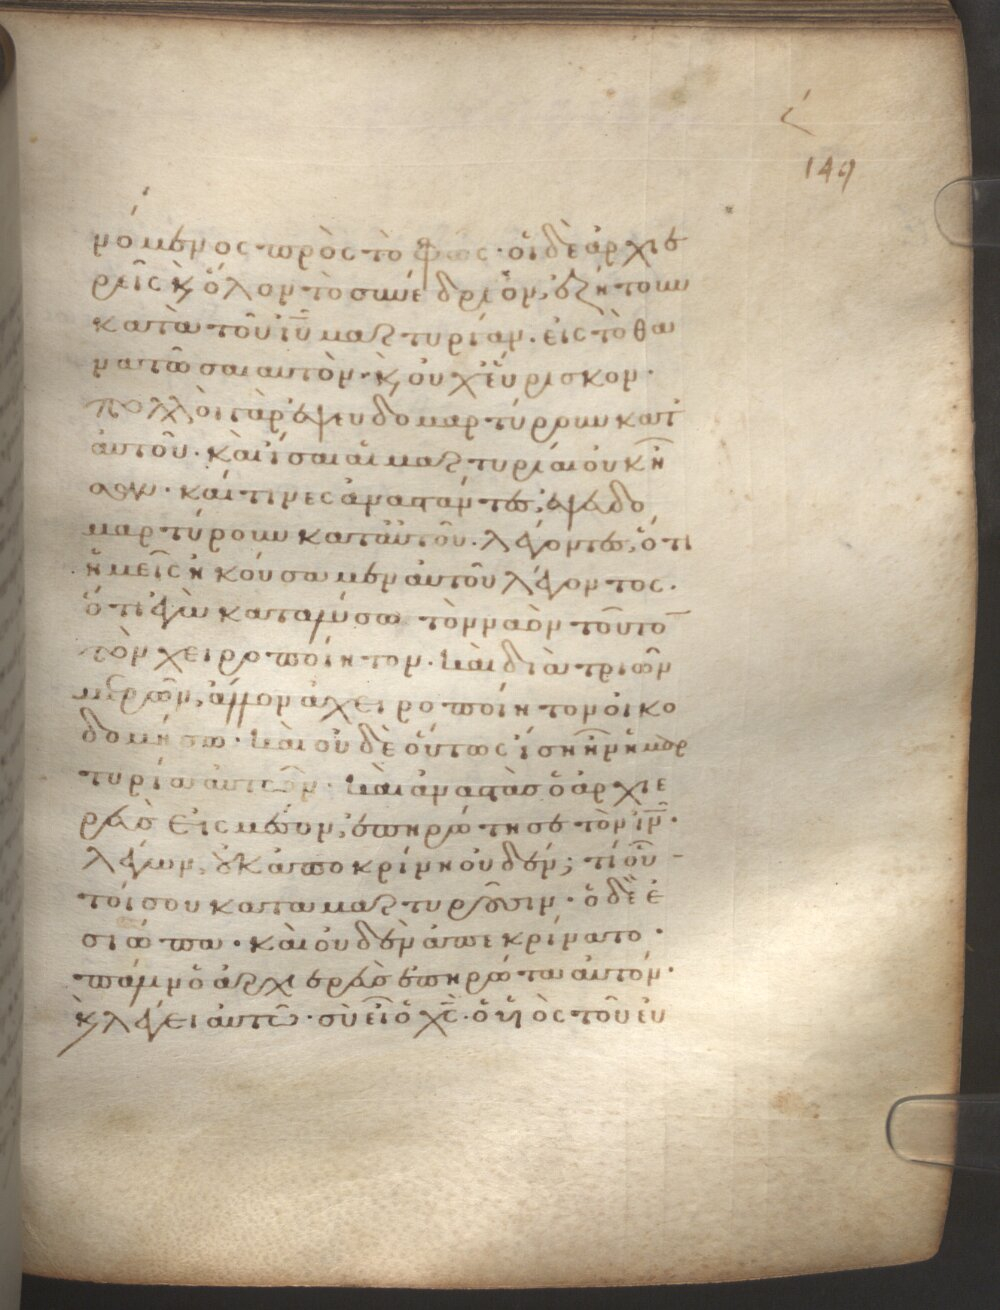 149
νόμενος πρὸς τὸ φῶς · οἱ δὲ ἀρχιε
ρεῖς κ ὅλον τὸ συνέδριον, ἐζήτουν
κατὰ τοῦ ιῦ μαρτυρίαν · εἰς τὸ θα
νατῶσαι αυτὸν · κ ουχ εὕρισκον ·
πολλοὶ γὰρ ἐψευδομαρτύρρουν κατ
ἀυτοῦ · καὶ ἴσαι αἱ μαρτυρίαι ουκ ἦ
σαν · καί τινες ἀναστάντες, ἐψευδο
μαρτύρουν κατ ἀυτοῦ · λέγοντες, ὅτι
ἡμεῖς ἠκούσαμεν ἀυτοῦ λέγοντος ·
ὅτι ἐγὼ καταλύσω τὸν ναὸν τοῦτο
τὸν χειροποίητον · καὶ διὰ τριῶν
ημερῶν, ἄλλον ἀχειροποίητον οἰκο
δομήσω · καὶ οὐδὲ οὕτως ἴση ἦν ἡ μαρ
τυρία ἀυτῶν · καὶ ἀναστὰς ὁ ἀρχιε
ρεὺς εἰς μέσον, ἐπηρώτησε τὸν ιν ·
λέγων, ὀυκ ἀποκρίνη οὐδέν; τί οὗ
τοί σου καταμαρτυροῦσιν · ὁ δὲ ἐ
σιώπα · καὶ οὐδὲν ἀπεκρίνατο ·
πάλιν ὁ ἀρχιερεὺς ἐπηρώτα ἀυτόν ·
κ λέγει ἀυτῶ · σὺ εἶ ὁ χς · ὁ ὑιὸς τοῦ ευ